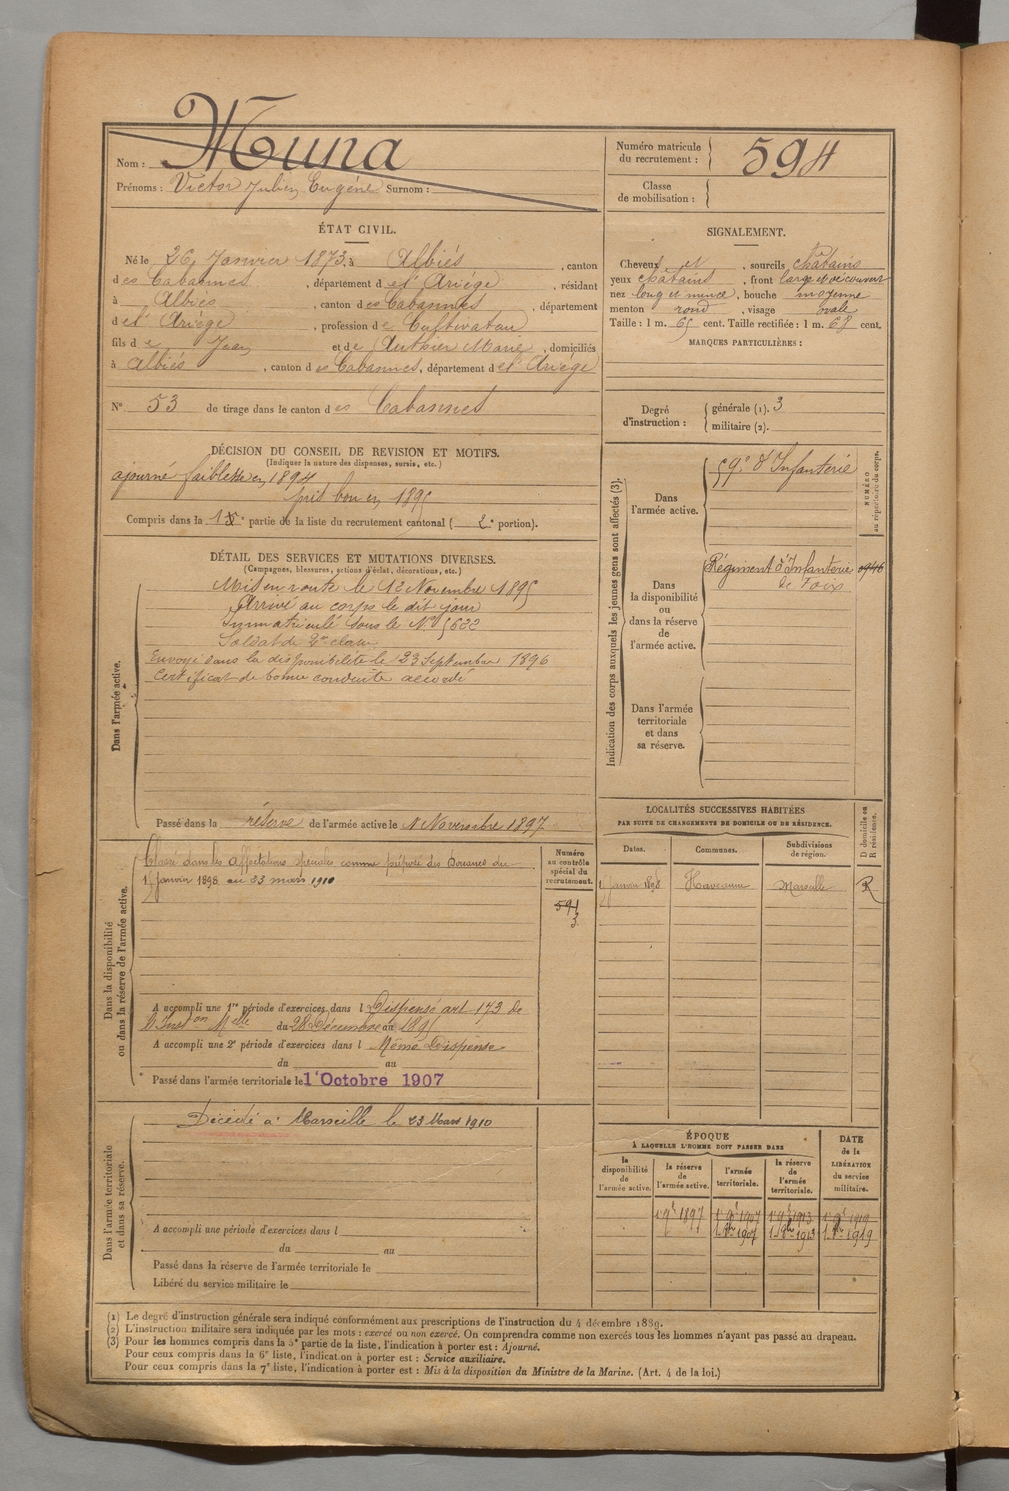 Nom : Muna
Prénoms : Victor Julien Eugène Surnom :
Numéro matricule du recrutement : 594
Classe de mobilisation :
ÉTAT CIVIL.
Né le 26 Janvier 1873, à Albiès, canton
des Cabannes, département de l'Ariège, résidant
à Albiès, canton des Cabannes, département
de l'Ariège, profession de Cultivateur
fils de Jean et de Authier Marie, domiciliés
à Albiès, canton des Cabannes, département de l'Ariège
N° 53 de tirage dans le canton des Cabannes
SIGNALEMENT.
Cheveux et, sourcils châtains
yeux châtains, front large et découvert
nez long et mince, bouche moyenne
menton rond, visage ovale
Taille : 1 m. 65 cent. Taille rectifiée : 1 m. 68 cent.
MARQUES PARTICULIÈRES :
Degré d'instruction : générale (1). 3
militaire (2).
DÉCISION DU CONSEIL DE REVISION ET MOTIFS.
(Indiquer la nature des dispenses, sursis, etc.)
ajourné faiblesse en 1894
pris bon en 1895
Compris dans la 1e partie de la liste du recrutement cantonal ( 2e portion).
DÉTAIL DES SERVICES ET MUTATIONS DIVERSES.
(Campagnes, blessures, actions d'éclat, décorations, etc.)
Dans l'armée active.
Mis en route le 12 Novembre 1895
Arrivé au corps le dit jour
Immatriculé sous le N° 5622
Soldat de 2e classe
Envoyé dans la disponibilité le 23 Septembre 1896
Certificat de bonne conduite accordé
Passé dans la réserve de l'armée active le 1 Novembre 1897
Indication des corps auxquels les jeunes gens sont affectés (3).
NUMÉRO au répertoire du corps.
Dans l'armée active.
59e d'Infanterie
Dans la disponibilité ou dans la réserve de l'armée active.
Régiment d'Infanterie
de Foix
0946
Dans l'armée territoriale et dans sa réserve.
LOCALITÉS SUCCESSIVES HABITÉES
PAR SUITE DE CHANGEMENTS DE DOMICILE OU DE RÉSIDENCE.
Dates. Communes. Subdivisions de région. D domicile ou R résidence.
1 Janvier 1898 Marseille R
Dans la disponibilité ou dans la réserve de l'armée active.
Numéro au contrôle spécial du recrutement.
591
3
Classé dans les affectations spéciales comme préposé des Douanes du
1 Janvier 1898 au 23 mars 1910
A accompli une 1re période d'exercices dans l Dispensé art. 173 de
l'Inston Melle du 28 Décembre au 1895
A accompli une 2e période d'exercices dans l Même Dispense
du au
Passé dans l'armée territoriale le 1er Octobre 1907
Dans l'armée territoriale et dans sa réserve.
Décédé à Marseille le 23 Mars 1910
A accompli une période d'exercices dans l
du au
Passé dans la réserve de l'armée territoriale le
Libéré du service militaire le
ÉPOQUE
À LAQUELLE L'HOMME DOIT PASSER DANS
DATE de la LIBÉRATION du service militaire.
la disponibilité de l'armée active. la réserve de l'armée active. l'armée territoriale. la réserve de l'armée territoriale.
1 9e 1897 1 9e 1907 1 9e 1913 1 9e 1919
1 8bre 1907 1 8bre 1913 1 8bre 1919
(1) Le degré d'instruction générale sera indiqué conformément aux prescriptions de l'instruction du 4 décembre 1889.
(2) L'instruction militaire sera indiquée par les mots : exercé ou non exercé. On comprendra comme non exercés tous les hommes n'ayant pas passé au drapeau.
(3) Pour les hommes compris dans la 5e partie de la liste, l'indication à porter est : Ajourné.
Pour ceux compris dans la 6e liste, l'indication à porter est : Service auxiliaire.
Pour ceux compris dans la 7e liste, l'indication à porter est : Mis à la disposition du Ministre de la Marine. (Art. 4 de la loi.)